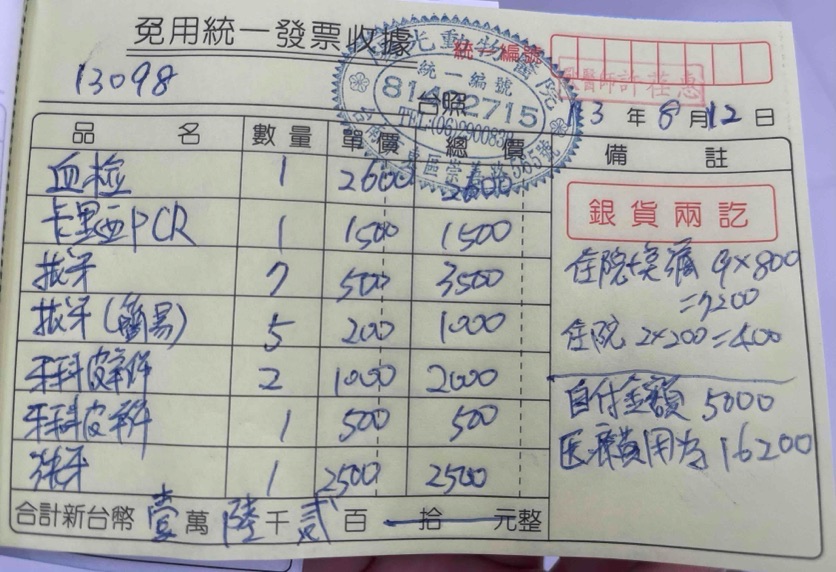 免用統一發票收據
統一編號
13098
光動物醫院
統一編號
台照
113年8月12日
品名 數量 單價 總價 備註
血檢 1 2600 2600
卡里西PCR 1 1500 1500
拔牙 7 500 3500
拔牙(簡易) 5 200 1000
牙科皮瓣 2 1000 2000
牙科皮瓣 1 500 500
洗牙 1 2500 2500
合計新台幣壹萬陸千貳百拾元整
銀貨兩訖
9×800
=7200
住院 2×200=400
自付金額 5000
医療費用為 16200